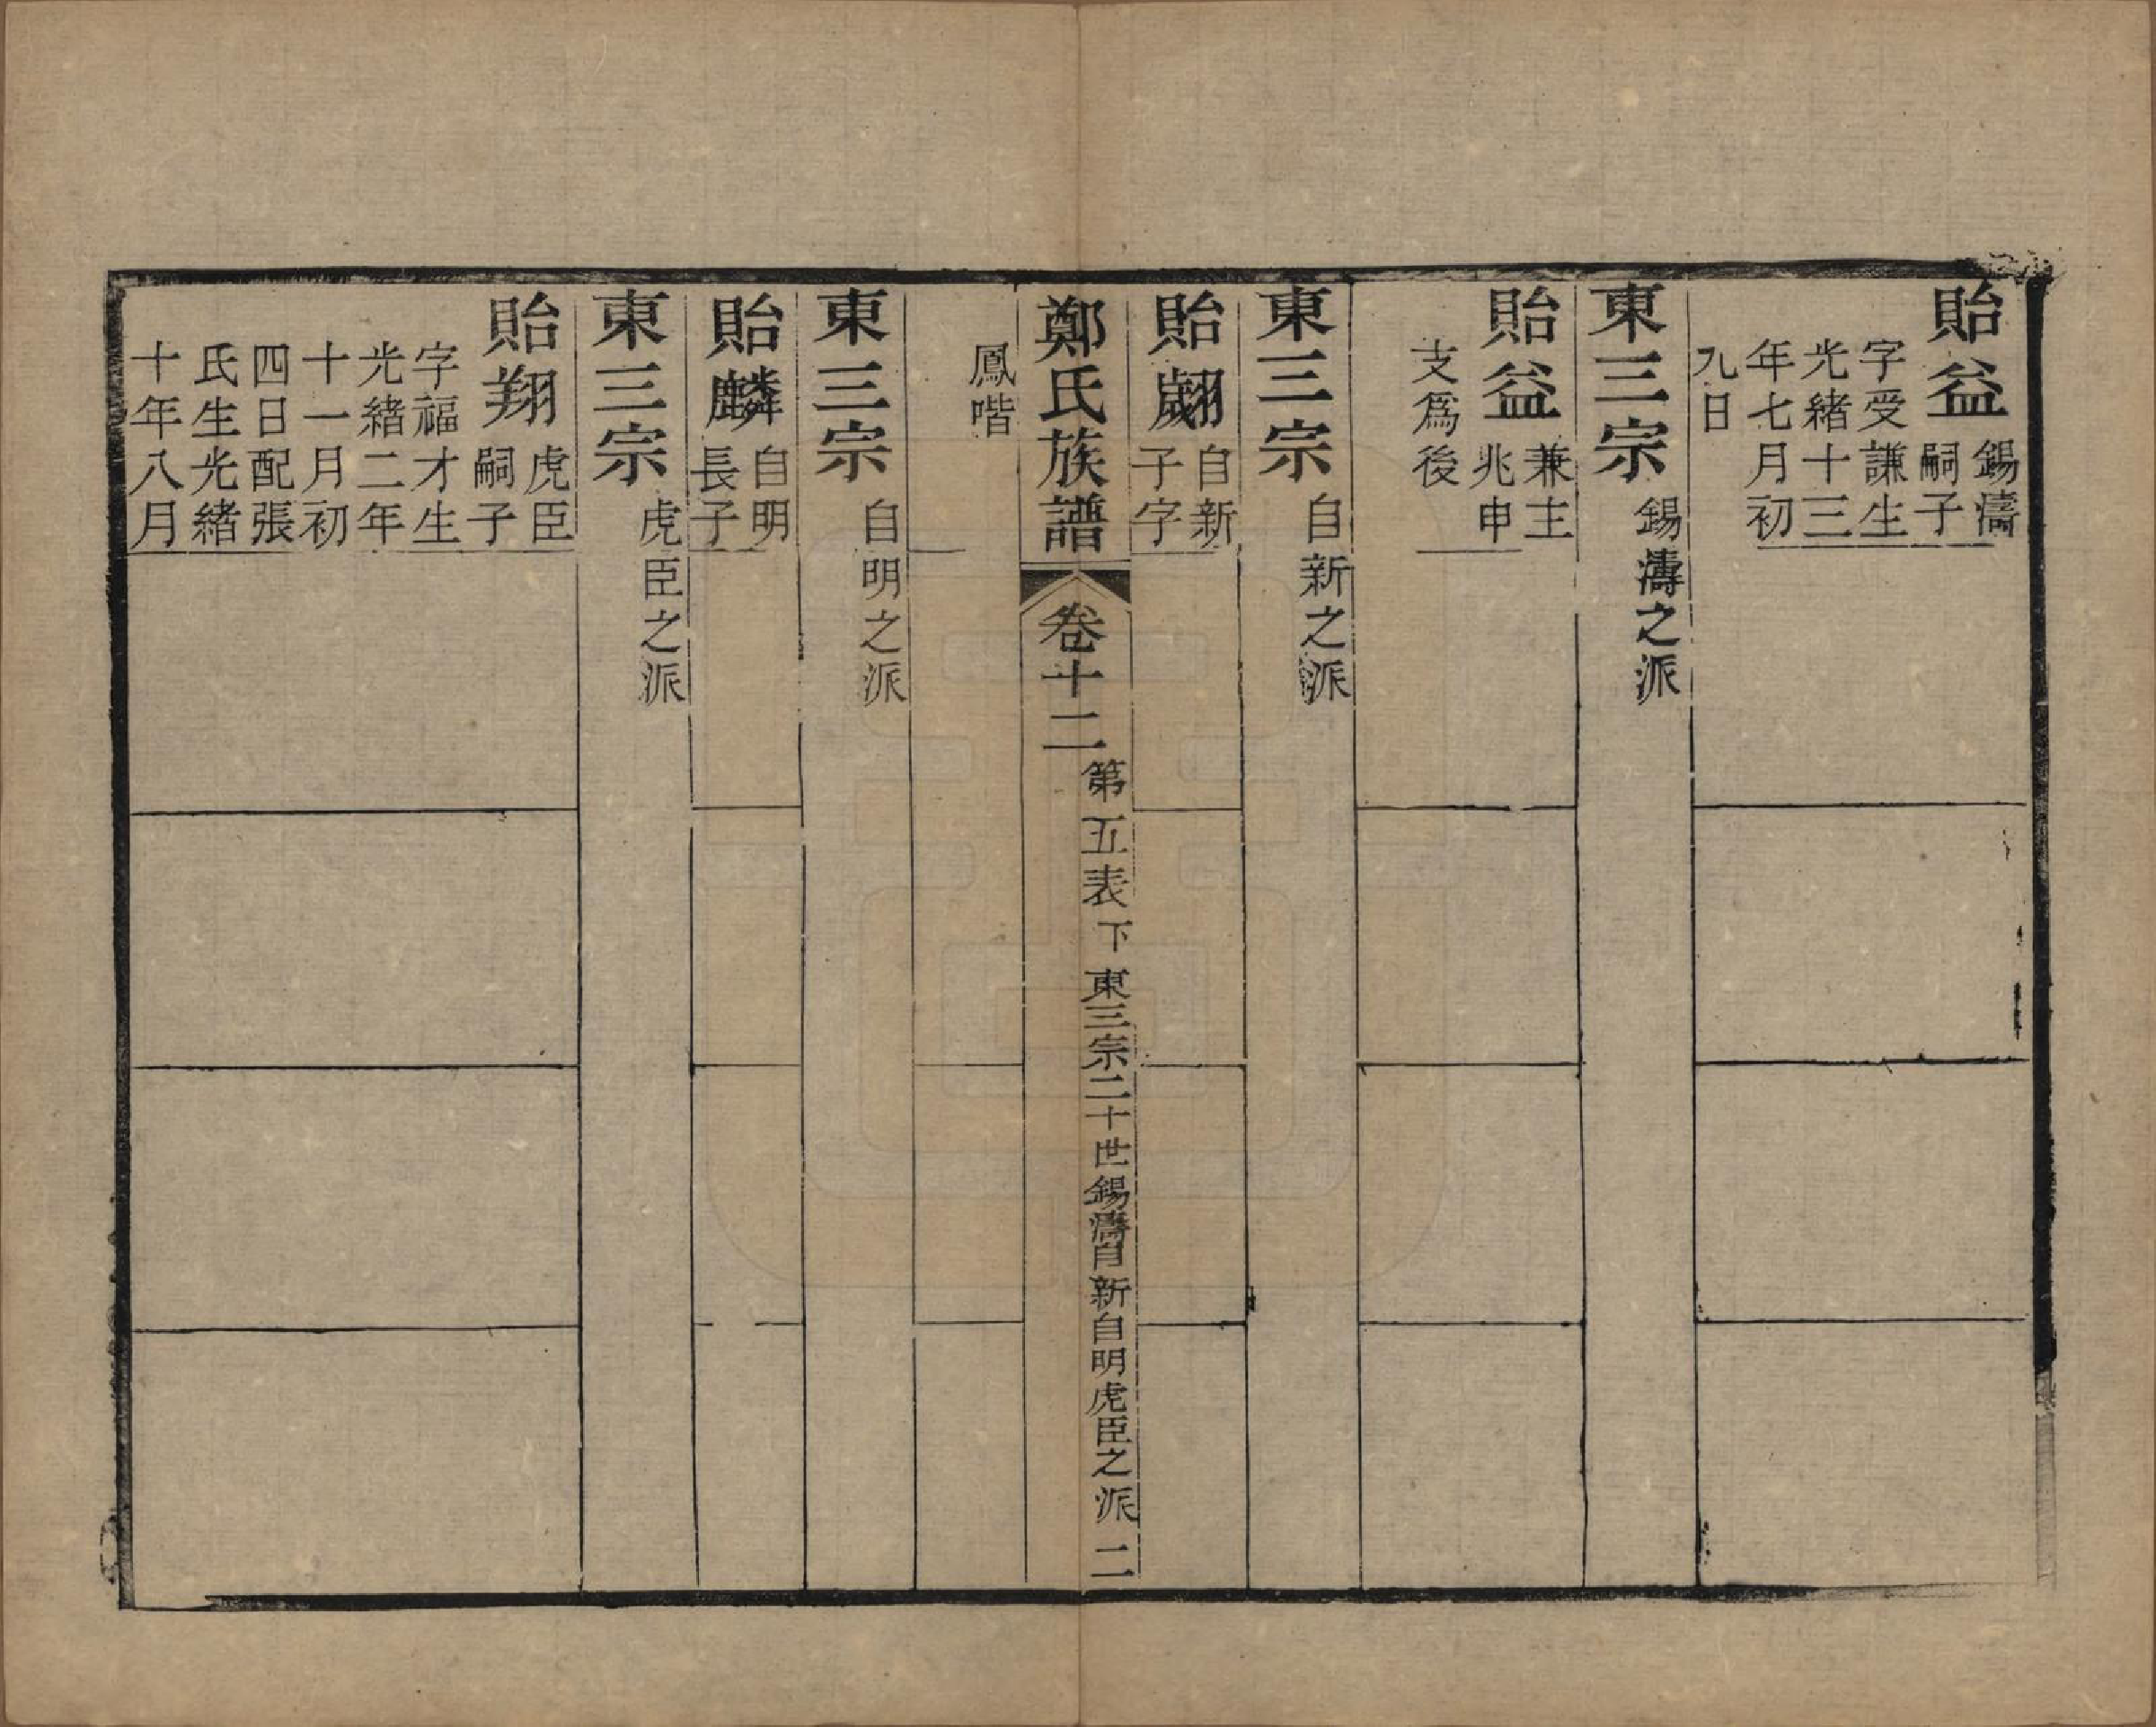 貽益
錫濤
嗣子
字受謙生
光緒十三
年七月初
九日
東三宗 錫濤之派
貽益
兼主
兆申
支爲後
東三宗 自新之派
貽翽
自新
子字
鄭氏族譜 卷十二 第五表下 東三宗二十世錫濤自新自明虎臣之派 二
鳳喈
東三宗 自明之派
貽麟
自明
長子
東三宗 虎臣之派
貽翔
虎臣
嗣子
字福才生
光緒二年
十一月初
四日配張
氏生光緒
十年八月